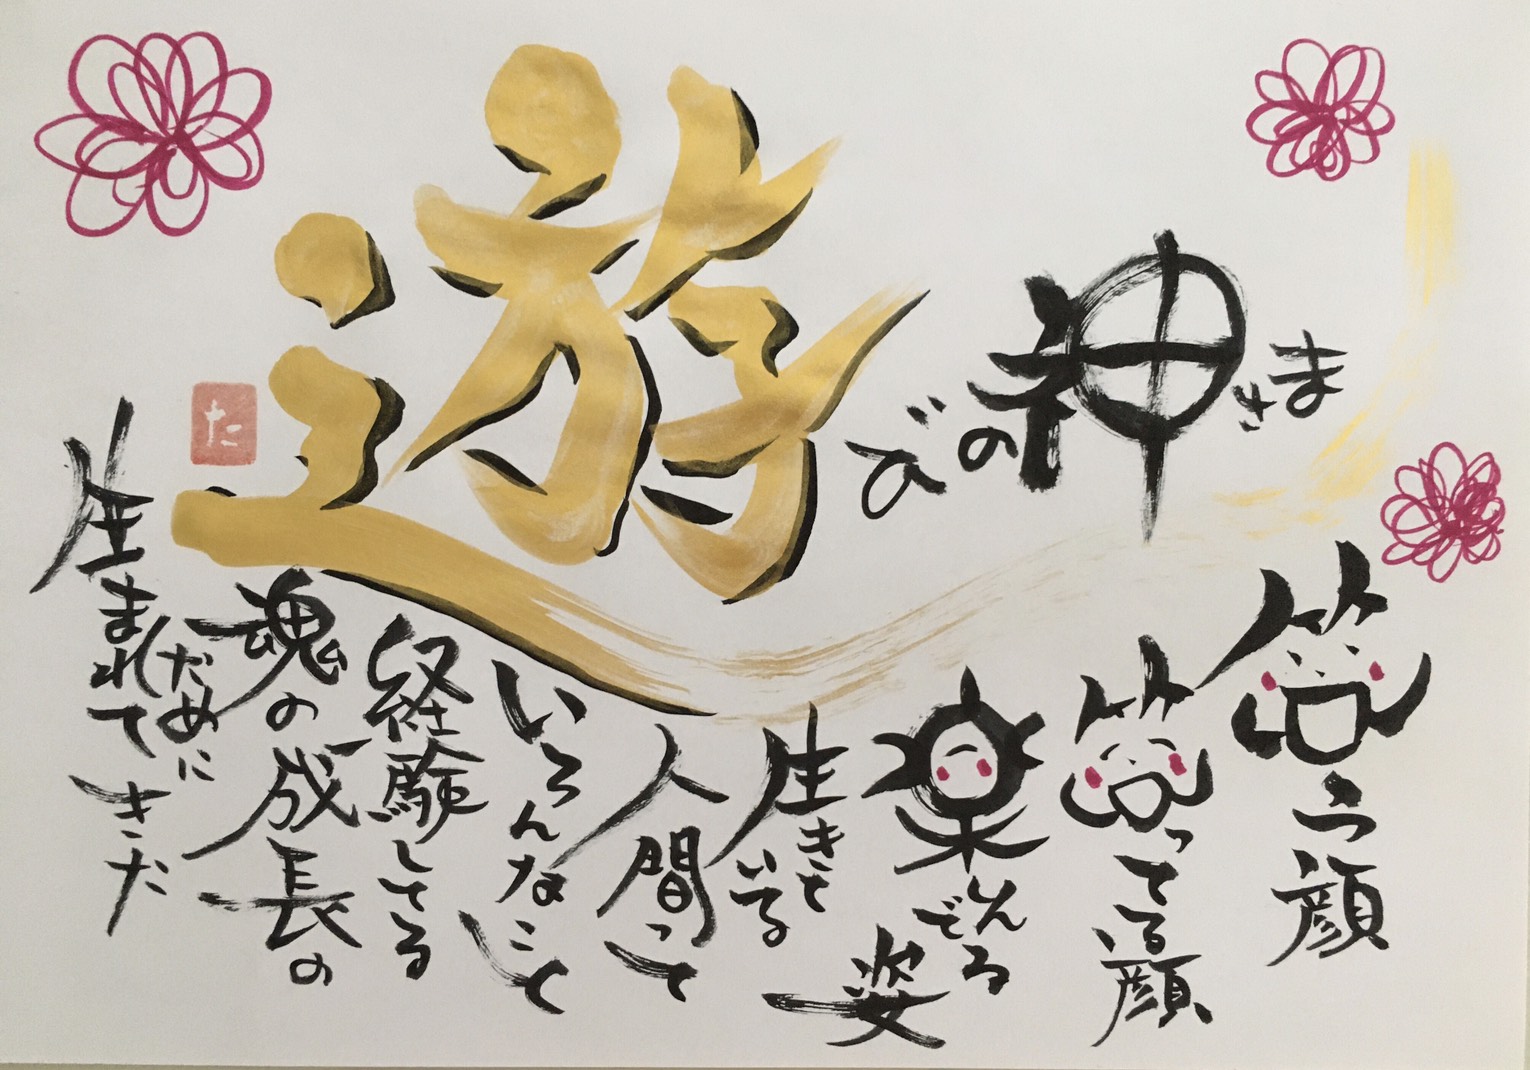 遊びの神さま
笑う顔
笑ってる顔
楽しんでる
姿
生きている
人間って
いろんなこと
経験してる
魂の成長の
ために
生まれてきた
た